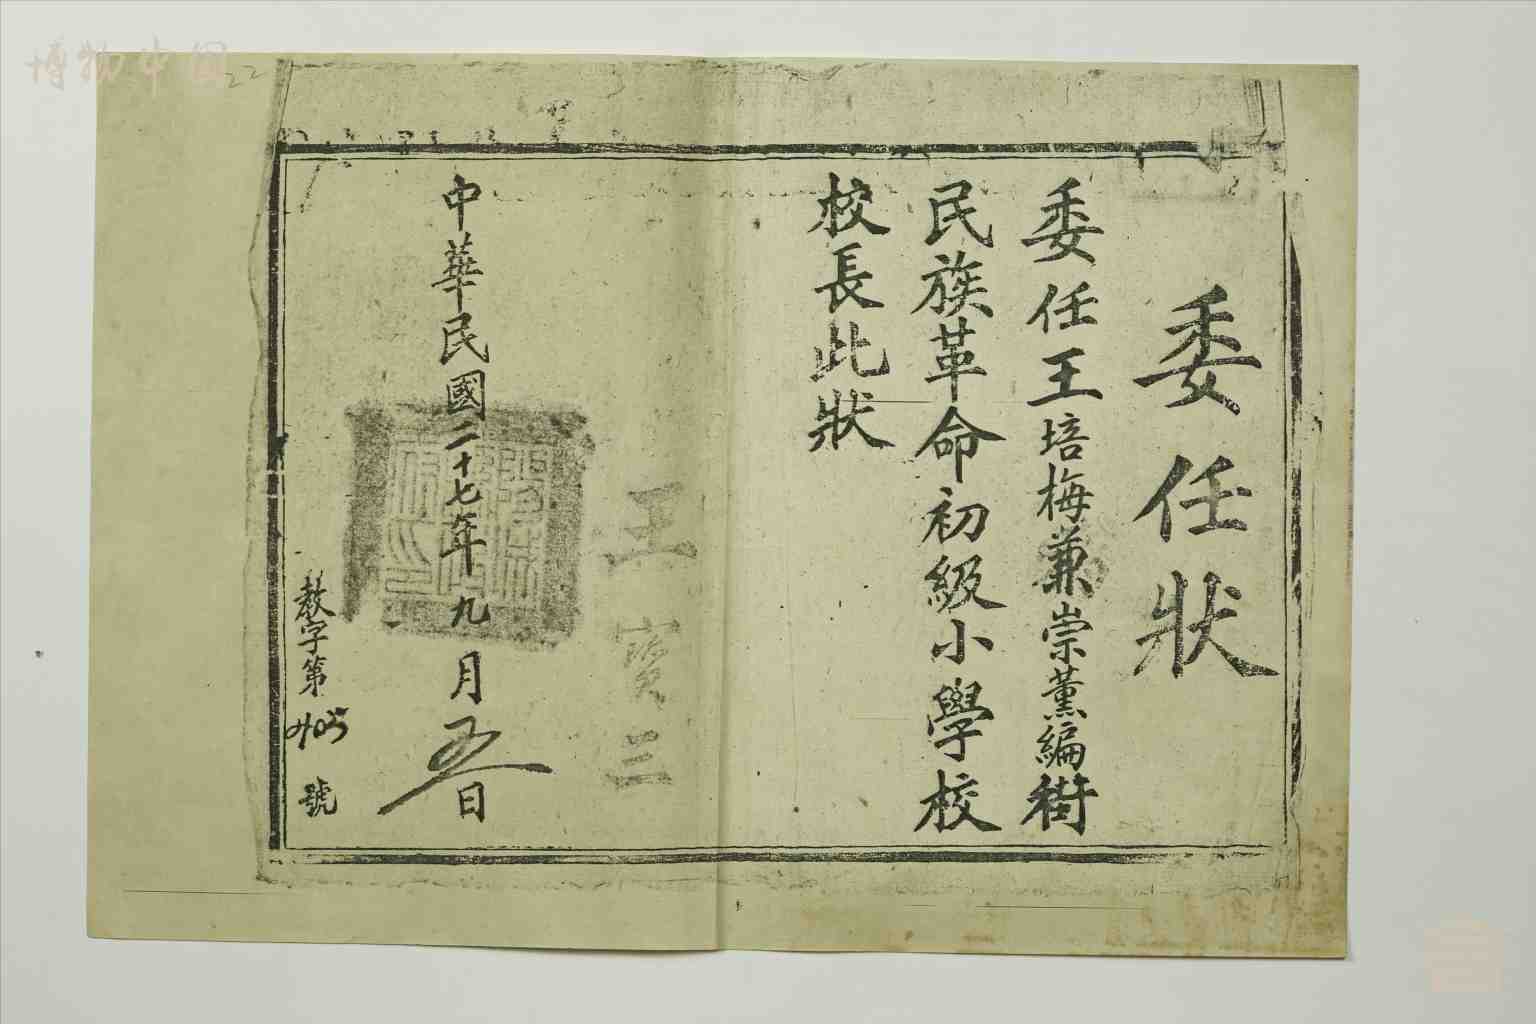 委任状
委任王培梅兼崇薰編街
民族革命初級小學校
校長此狀
王寶三
中華民國二十七年九月五日
教字第
號
博物中国
22